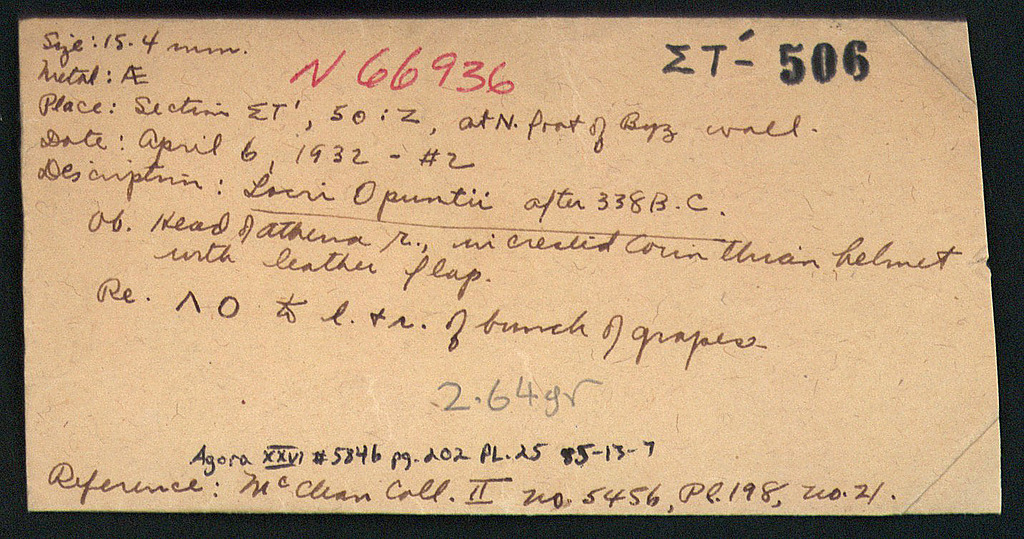 Size: 15.4 mm.
N 66936
ΣΤ´- 506
Metal: Æ
Place: Section ΣΤ', 50:Z, at N. foot of Byz wall.
Date: April 6, 1932 - #2
Description: Locri Opuntii after 338 B.C.
Ob. Head of athena r., in crested Corinthian helmet
with leather flap.
Re. ΛΟ to l. + r. of bunch of grapes
2.64gr
Agora XXVI #584b pg. 202 PL. 25 85-13-7
Reference: McClean Coll. II no. 5456, Pl. 198, no. 21.